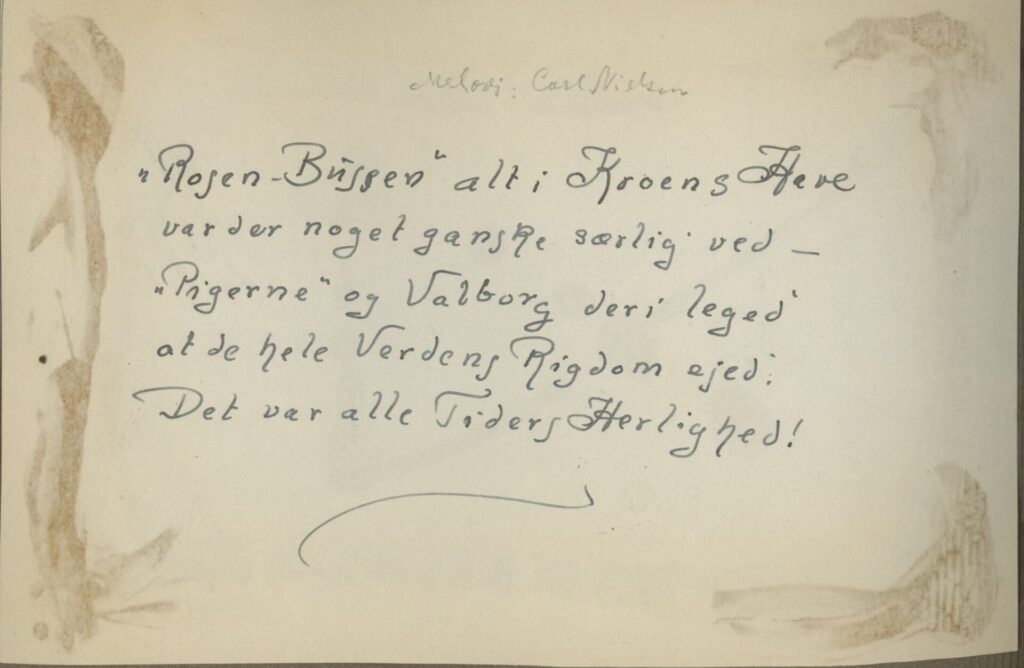 Melodi: Carl Nielsen
"Rosen-Bussen" alt i Kroens Have
var der noget ganske særlig' ved —
"Pigerne" og Valborg deri leged'
at de hele Verdens Rigdom ejed:
Det var alle Tiders Herlighed!